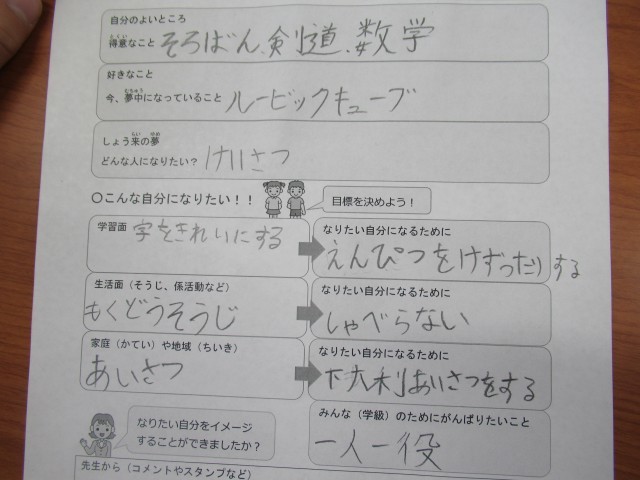 自分のよいところ
得意なこと そろばん、剣道、数学
好きなこと
今、夢中になっていること ルービックキューブ
しょう来の夢
どんな人になりたい? けいさつ
〇こんな自分になりたい!! 目標を決めよう!
学習面 字をきれいにする
なりたい自分になるために
えんぴつをけずったりする
生活面(そうじ、係活動など)
もくどうそうじ
なりたい自分になるために
しゃべらない
家庭(かてい)や地域(ちいき)
あいさつ
なりたい自分になるために
あいさつをする
なりたい自分をイメージ
することができましたか?
みんな(学級)のためにがんばりたいこと
一人一役
先生から(コメントやスタンプなど)